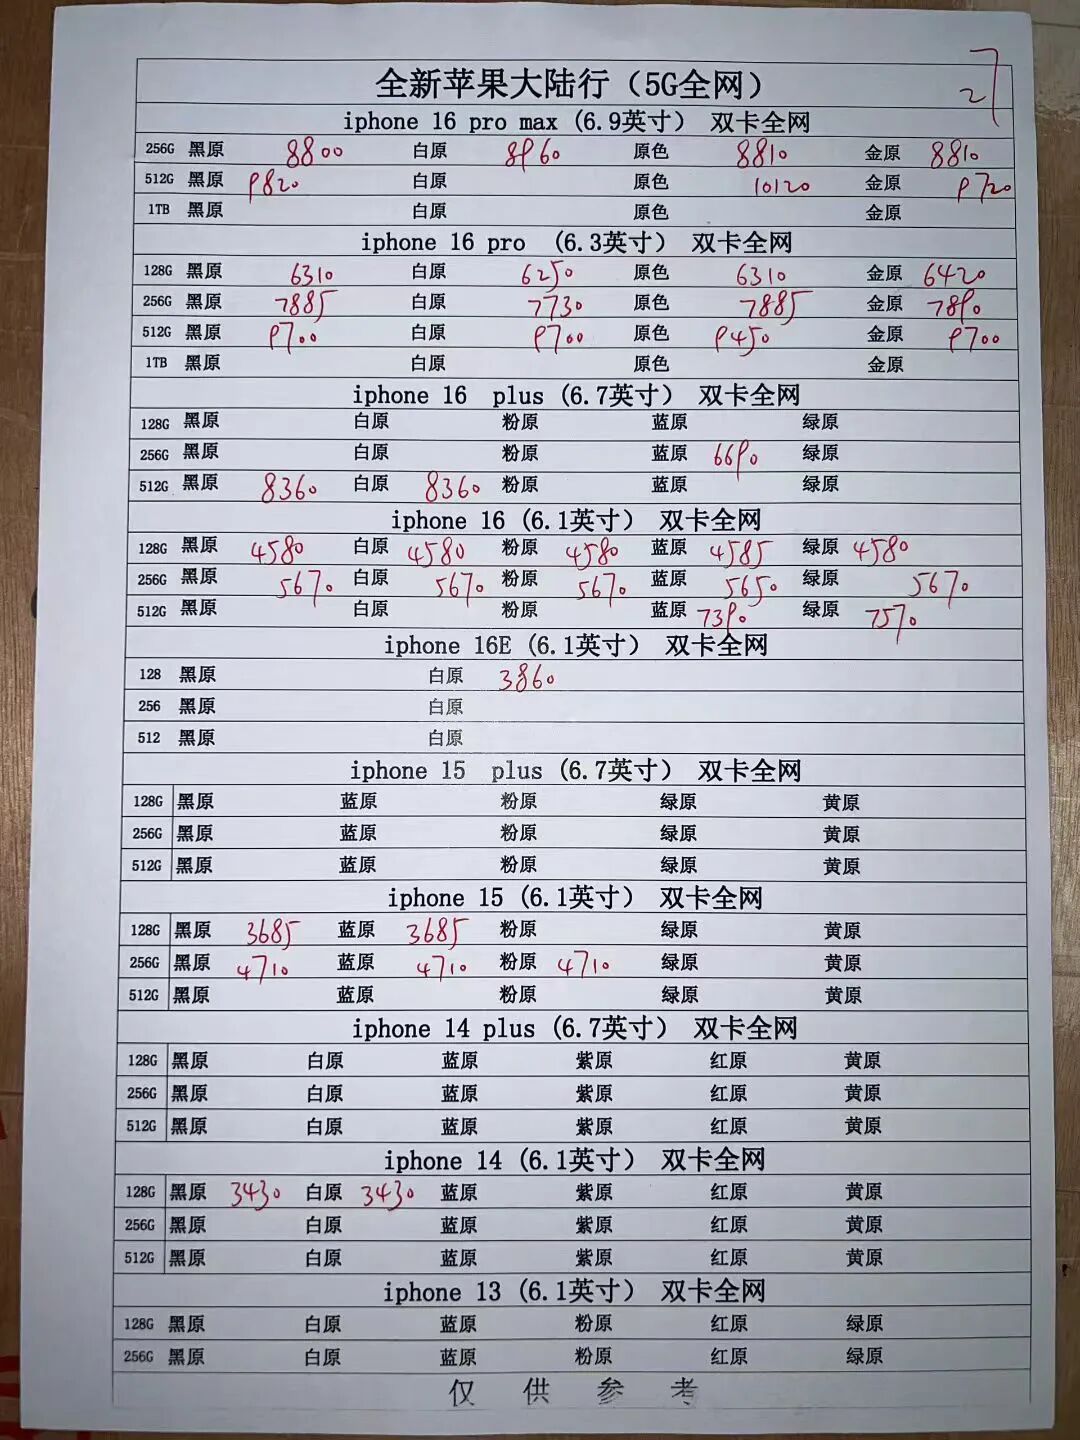 全新苹果大陆行（5G全网） 27
iphone 16 pro max (6.9英寸） 双卡全网
256G 黑原 8800 白原 8960 原色 8810 金原 8810
512G 黑原 9820 白原 原色 10120 金原 9720
1TB 黑原 白原 原色 金原
iphone 16 pro （6.3英寸） 双卡全网
128G 黑原 6310 白原 6250 原色 6310 金原 6420
256G 黑原 7885 白原 7730 原色 7885 金原 7890
512G 黑原 9700 白原 9700 原色 9450 金原 9700
1TB 黑原 白原 原色 金原
iphone 16 plus (6.7英寸） 双卡全网
128G 黑原 白原 粉原 蓝原 绿原
256G 黑原 白原 粉原 蓝原 6690 绿原
512G 黑原 8360 白原 8360 粉原 蓝原 绿原
iphone 16 (6.1英寸） 双卡全网
128G 黑原 4580 白原 4580 粉原 4580 蓝原 4585 绿原 4580
256G 黑原 5670 白原 5670 粉原 5670 蓝原 5650 绿原 5670
512G 黑原 白原 粉原 蓝原 7390 绿原 7570
iphone 16E (6.1英寸） 双卡全网
128 黑原 白原 3860
256 黑原 白原
512 黑原 白原
iphone 15 plus (6.7英寸） 双卡全网
128G 黑原 蓝原 粉原 绿原 黄原
256G 黑原 蓝原 粉原 绿原 黄原
512G 黑原 蓝原 粉原 绿原 黄原
iphone 15 (6.1英寸） 双卡全网
128G 黑原 3685 蓝原 3685 粉原 绿原 黄原
256G 黑原 4710 蓝原 4710 粉原 4710 绿原 黄原
512G 黑原 蓝原 粉原 绿原 黄原
iphone 14 plus (6.7英寸） 双卡全网
128G 黑原 白原 蓝原 紫原 红原 黄原
256G 黑原 白原 蓝原 紫原 红原 黄原
512G 黑原 白原 蓝原 紫原 红原 黄原
iphone 14 (6.1英寸） 双卡全网
128G 黑原 3430 白原 3430 蓝原 紫原 红原 黄原
256G 黑原 白原 蓝原 紫原 红原 黄原
512G 黑原 白原 蓝原 紫原 红原 黄原
iphone 13 (6.1英寸） 双卡全网
128G 黑原 白原 蓝原 粉原 红原 绿原
256G 黑原 白原 蓝原 粉原 红原 绿原
仅 供 参 考